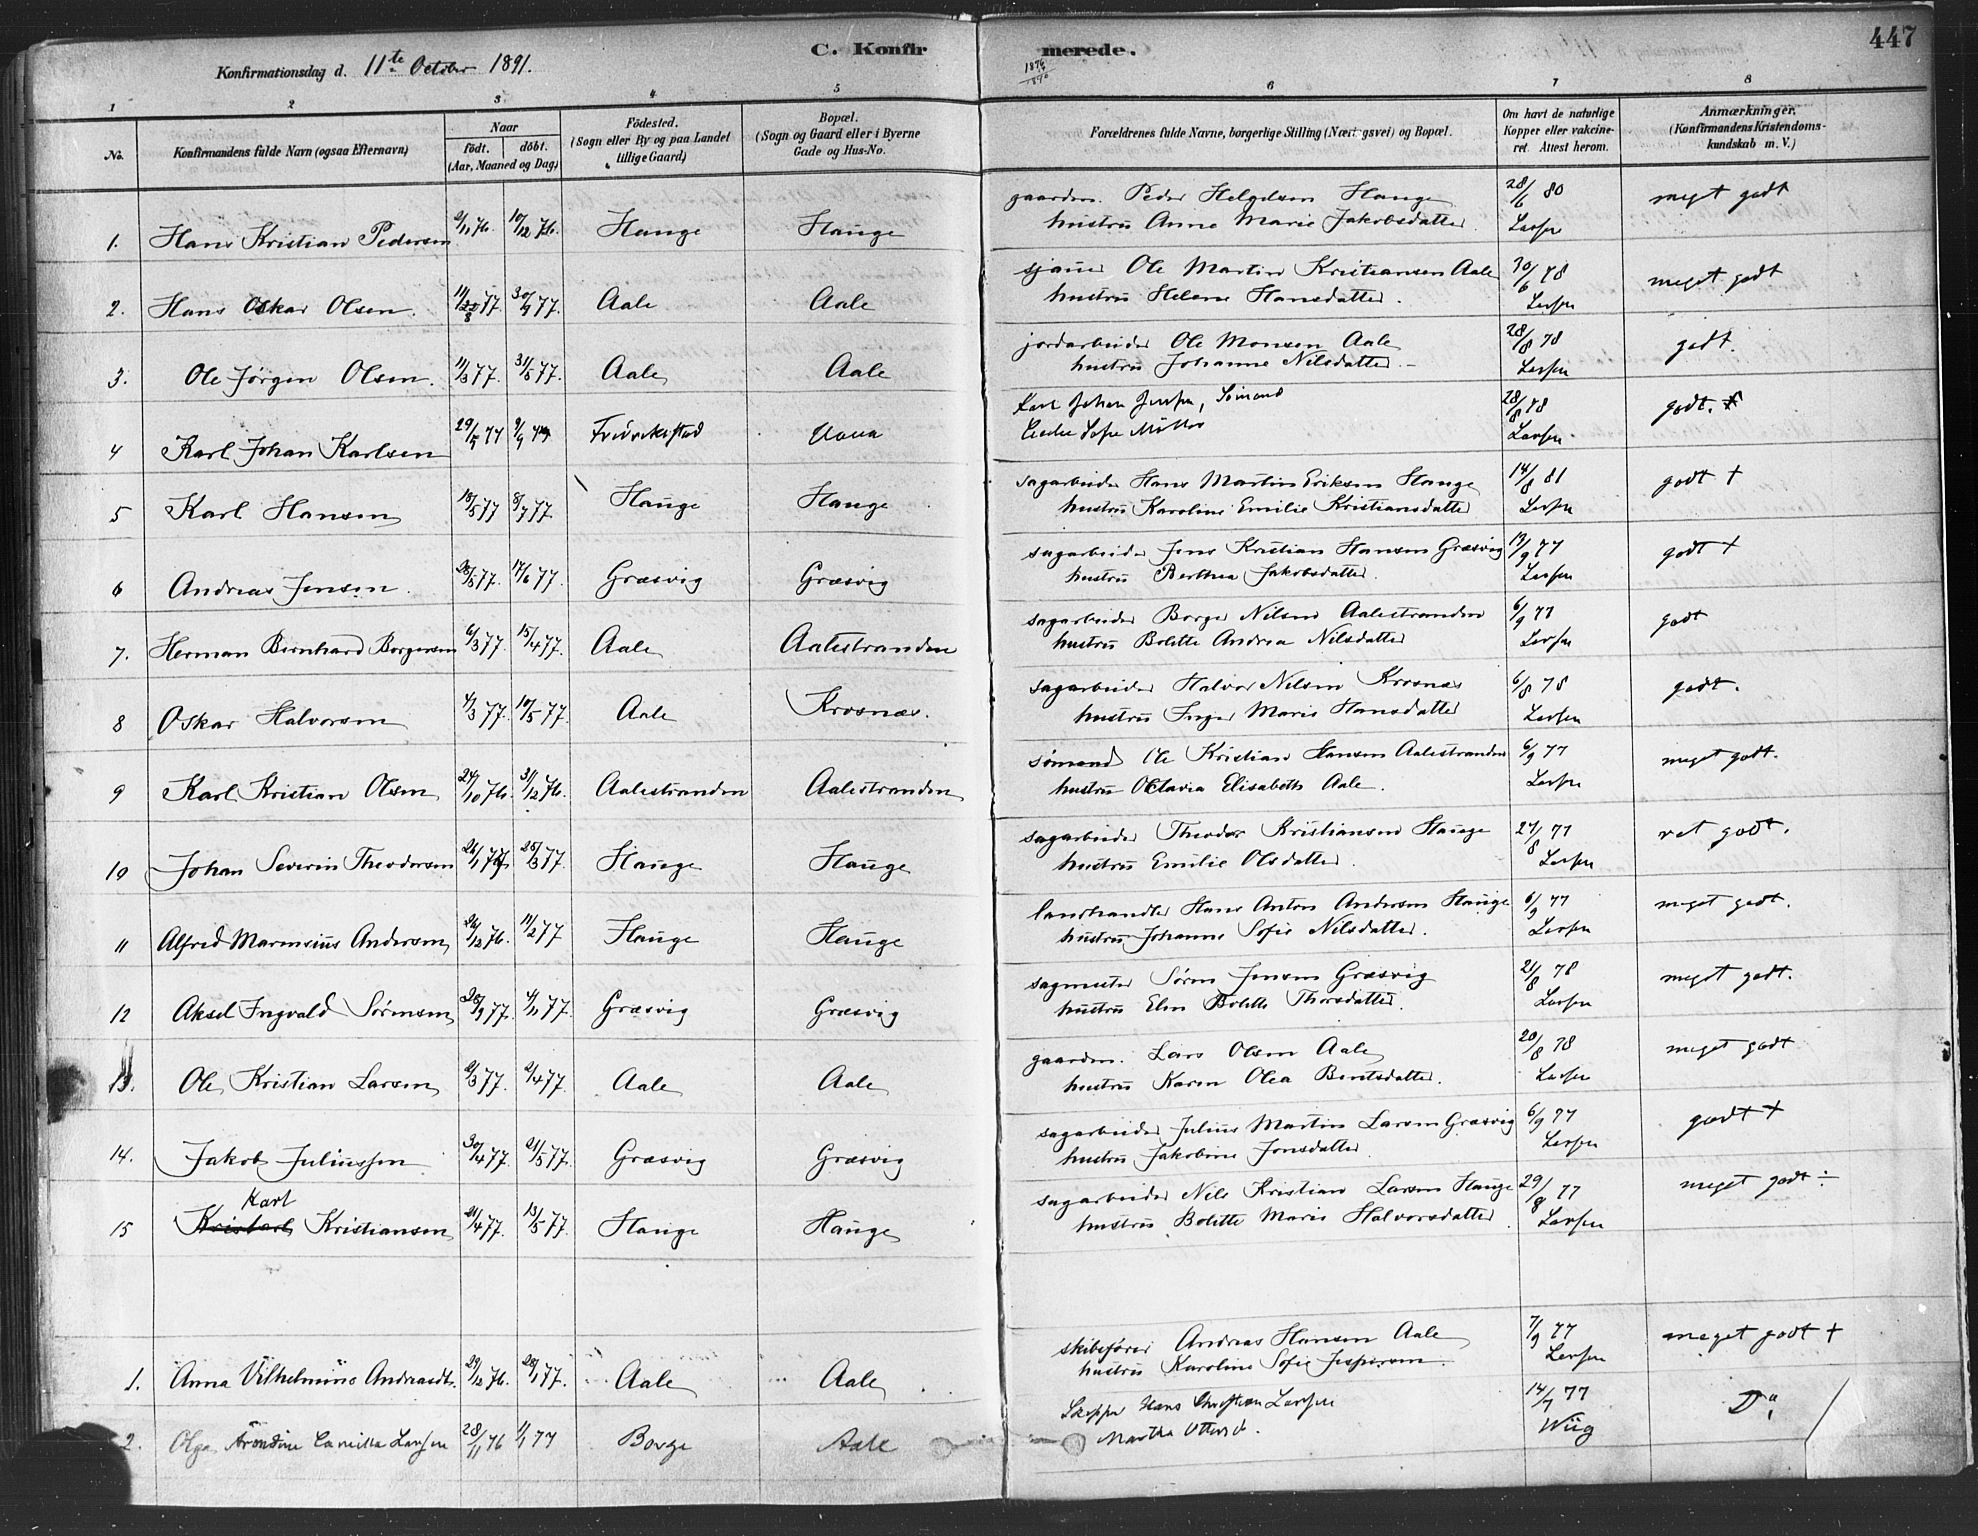 C. Konfirmerede. 447
Konfirmationsdag d. 11te October 1891.
1876
1890
1 2 3 4 5 6 7 8
No. Konfirmandens fulde Navn (ogsaa Efternavn) Naar født. døbt. (Aar, Maaned og Dag) Fødested. (Sogn eller By og paa Landet tillige Gaard) Bopæl. (Sogn og Gaard eller i Byerne Gade og Hus-No. Forældrenes fulde Navne, borgerlige Stilling (Næringsvei) og Bopæl. Om havt de naturlige Kopper eller vakcineret. Attest herom. Anmærkninger. (Konfirmandens Kristendomskundskab m. V.)
gaardm. Peder Helgesen Hauge 28/6 80 meget godt
1. Hans Kristian Pedersen 9/11 76. 10/12 76. Hauge Hauge hustru Anne Marie Jakobsdatter Larsen
sjauer Ole Martin Kristiansen Aale 30/6 78 meget godt
2. Hans Oskar Olsen. 77. 30/9 77. Aale Aale hustru Helene Hansdatter. Larsen
jordarbeider Ole Monsen Aale 28/8 78 godt.
3. Ole Jørgen Olsen. 11/3 77. 31/5 77. Aale Aale hustru Johanne Nilsdatter. Larsen
Karl Johan Jensen, Sømand 28/8 78 godt.
4 Karl Johan Karlsen 29/5 77 9/9 77 Fredrikstad Sofie Møller Larsen
sagarbeider Hans Martin Eriksen Hauge 14/8 81 godt +
5 Karl Hansen 13/5 77 8/7 77 Hauge Hauge hustru Karoline Emilie Kristiansdatter Larsen
sagarbeider Jens Kristian Hansen Græsvig 19/9 77 godt +
6 Andreas Jensen. 28/5 77. 17/6 77. Græsvig Græsvig hustru Berthea Jakobsdatter. Larsen
sagarbeider Borge Nilsen Aalestranden 6/9 77 godt
7. Herman Bernhard Borgersen 6/3 77. 15/4 77. Aale Aalestranden hustru Bolette Andrea Nilsdatter Larsen
sagarbeider Halvor Nilsen Krosnæs 6/8 78 godt.
8 Oskar Halvorsen 4/3 77. 10/5 77. Aale Krosnæs. hustru Inger Marie Hansdatter Larsen
sømand Ole Kristian Hansen Aalestranden 6/9 77 meget godt.
9 Karl Kristian Olsen 24/10 76. 31/12 76. Aalestranden Aalestranden hustru Octavia Elisabeth Aale. Larsen
sagarbeider Theodor Kristiansen Hauge 27/8 77 ret godt.
10 Johan Severin Theodorsen 26/1 77. 25/3 77. Hauge Hauge hustru Emilie Olsdatter. Larsen
landhandler Hans Anton Andersen Hauge 6/9 77 meget godt.
11 Alfred Marensius Andersen 26/12 76. 11/2 77 Hauge Hauge hustru Johanne Sofie Nilsdatter. Larsen
sagmester Søren Jensen Græsvig 21/8 78 meget godt.
12 Aksel Ingvald Sørensen 28/9 77. 4/11 77. Græsvig Græsvig hustru Elen Bolette Thorsdatter. Larsen
gaardm. Lars Olsen Aale 20/8 78 meget godt
13. Ole Kristian Larsen 2/3 77. 2/4 77. Aale Aale hustru Karen Olea Bentsdatter. Larsen
sagarbeider Julius Martin Larsen Græsvig 6/9 77 godt +
14. Jakob Juliussen 30/4 77. 21/5 77. Græsvig Græsvig hustru Jakobine Jensdatter. Larsen
Karl
sagarbeider Nils Kristian Larsen Hauge 29/8 77 meget godt ÷
15 Kristiansen 21/4 77. 13/5 77. Hauge Hauge hustru Bolette Marie Halvorsdatter Larsen
skibsfører Andreas Hansen Aale 7/9 77 meget godt +
1. Anna Vilhelmine Andreasdt. 29/12 76. 28/1 77. Aale Aale hustru Karoline Sofie Jespersen. Larsen
Skipper Hans Christian Larsen 14/7 77 Do
2. Olga Camilla Larsen 28/11 76 1/1 77 Borge Aale Martha Wiig